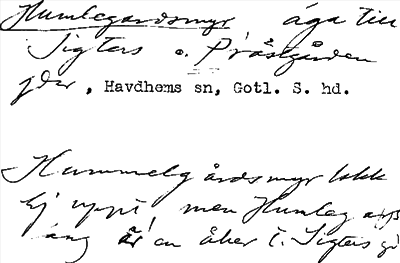 Humlegardsmyr äga till
Sigters o. Prästgården
jder, Havdhems sn, Gotl. S. hd.
Hummelgårdsmyr lskk
Ej uppt, men Humleg
äng är en åker t. Sigters